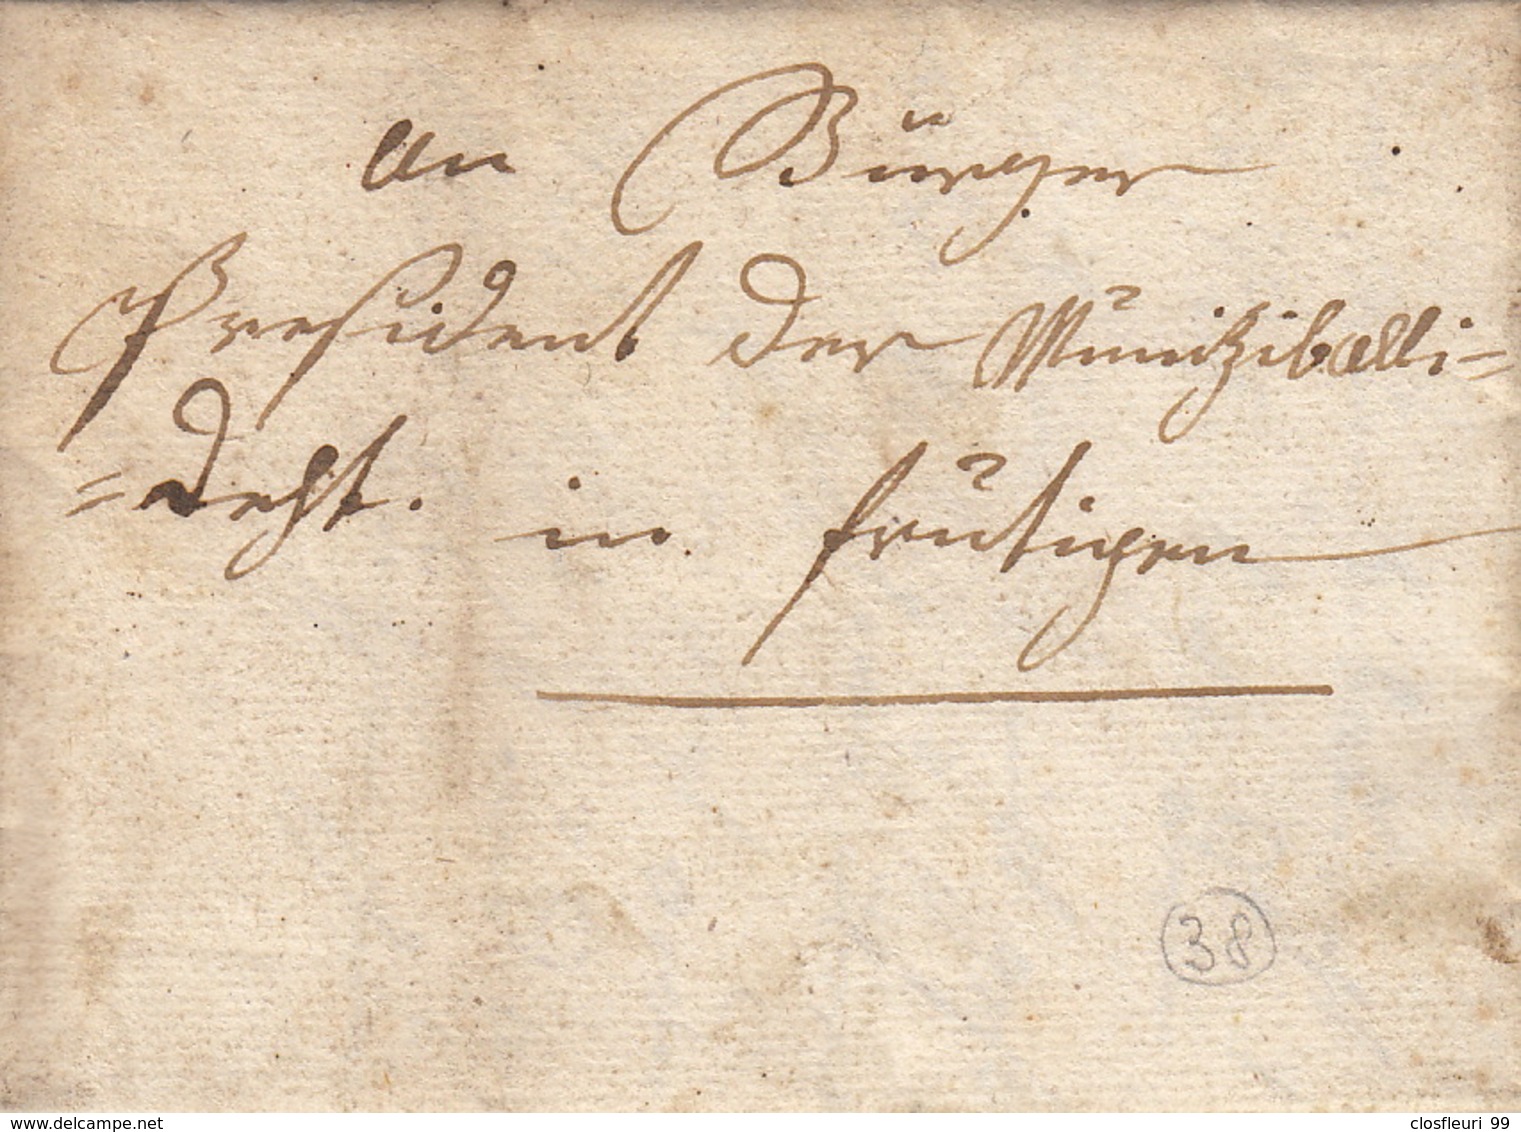 An Bürger
President der Munitzibalti=
=deht. in frutigen
38
www.delcampe.net
closfleuri 99